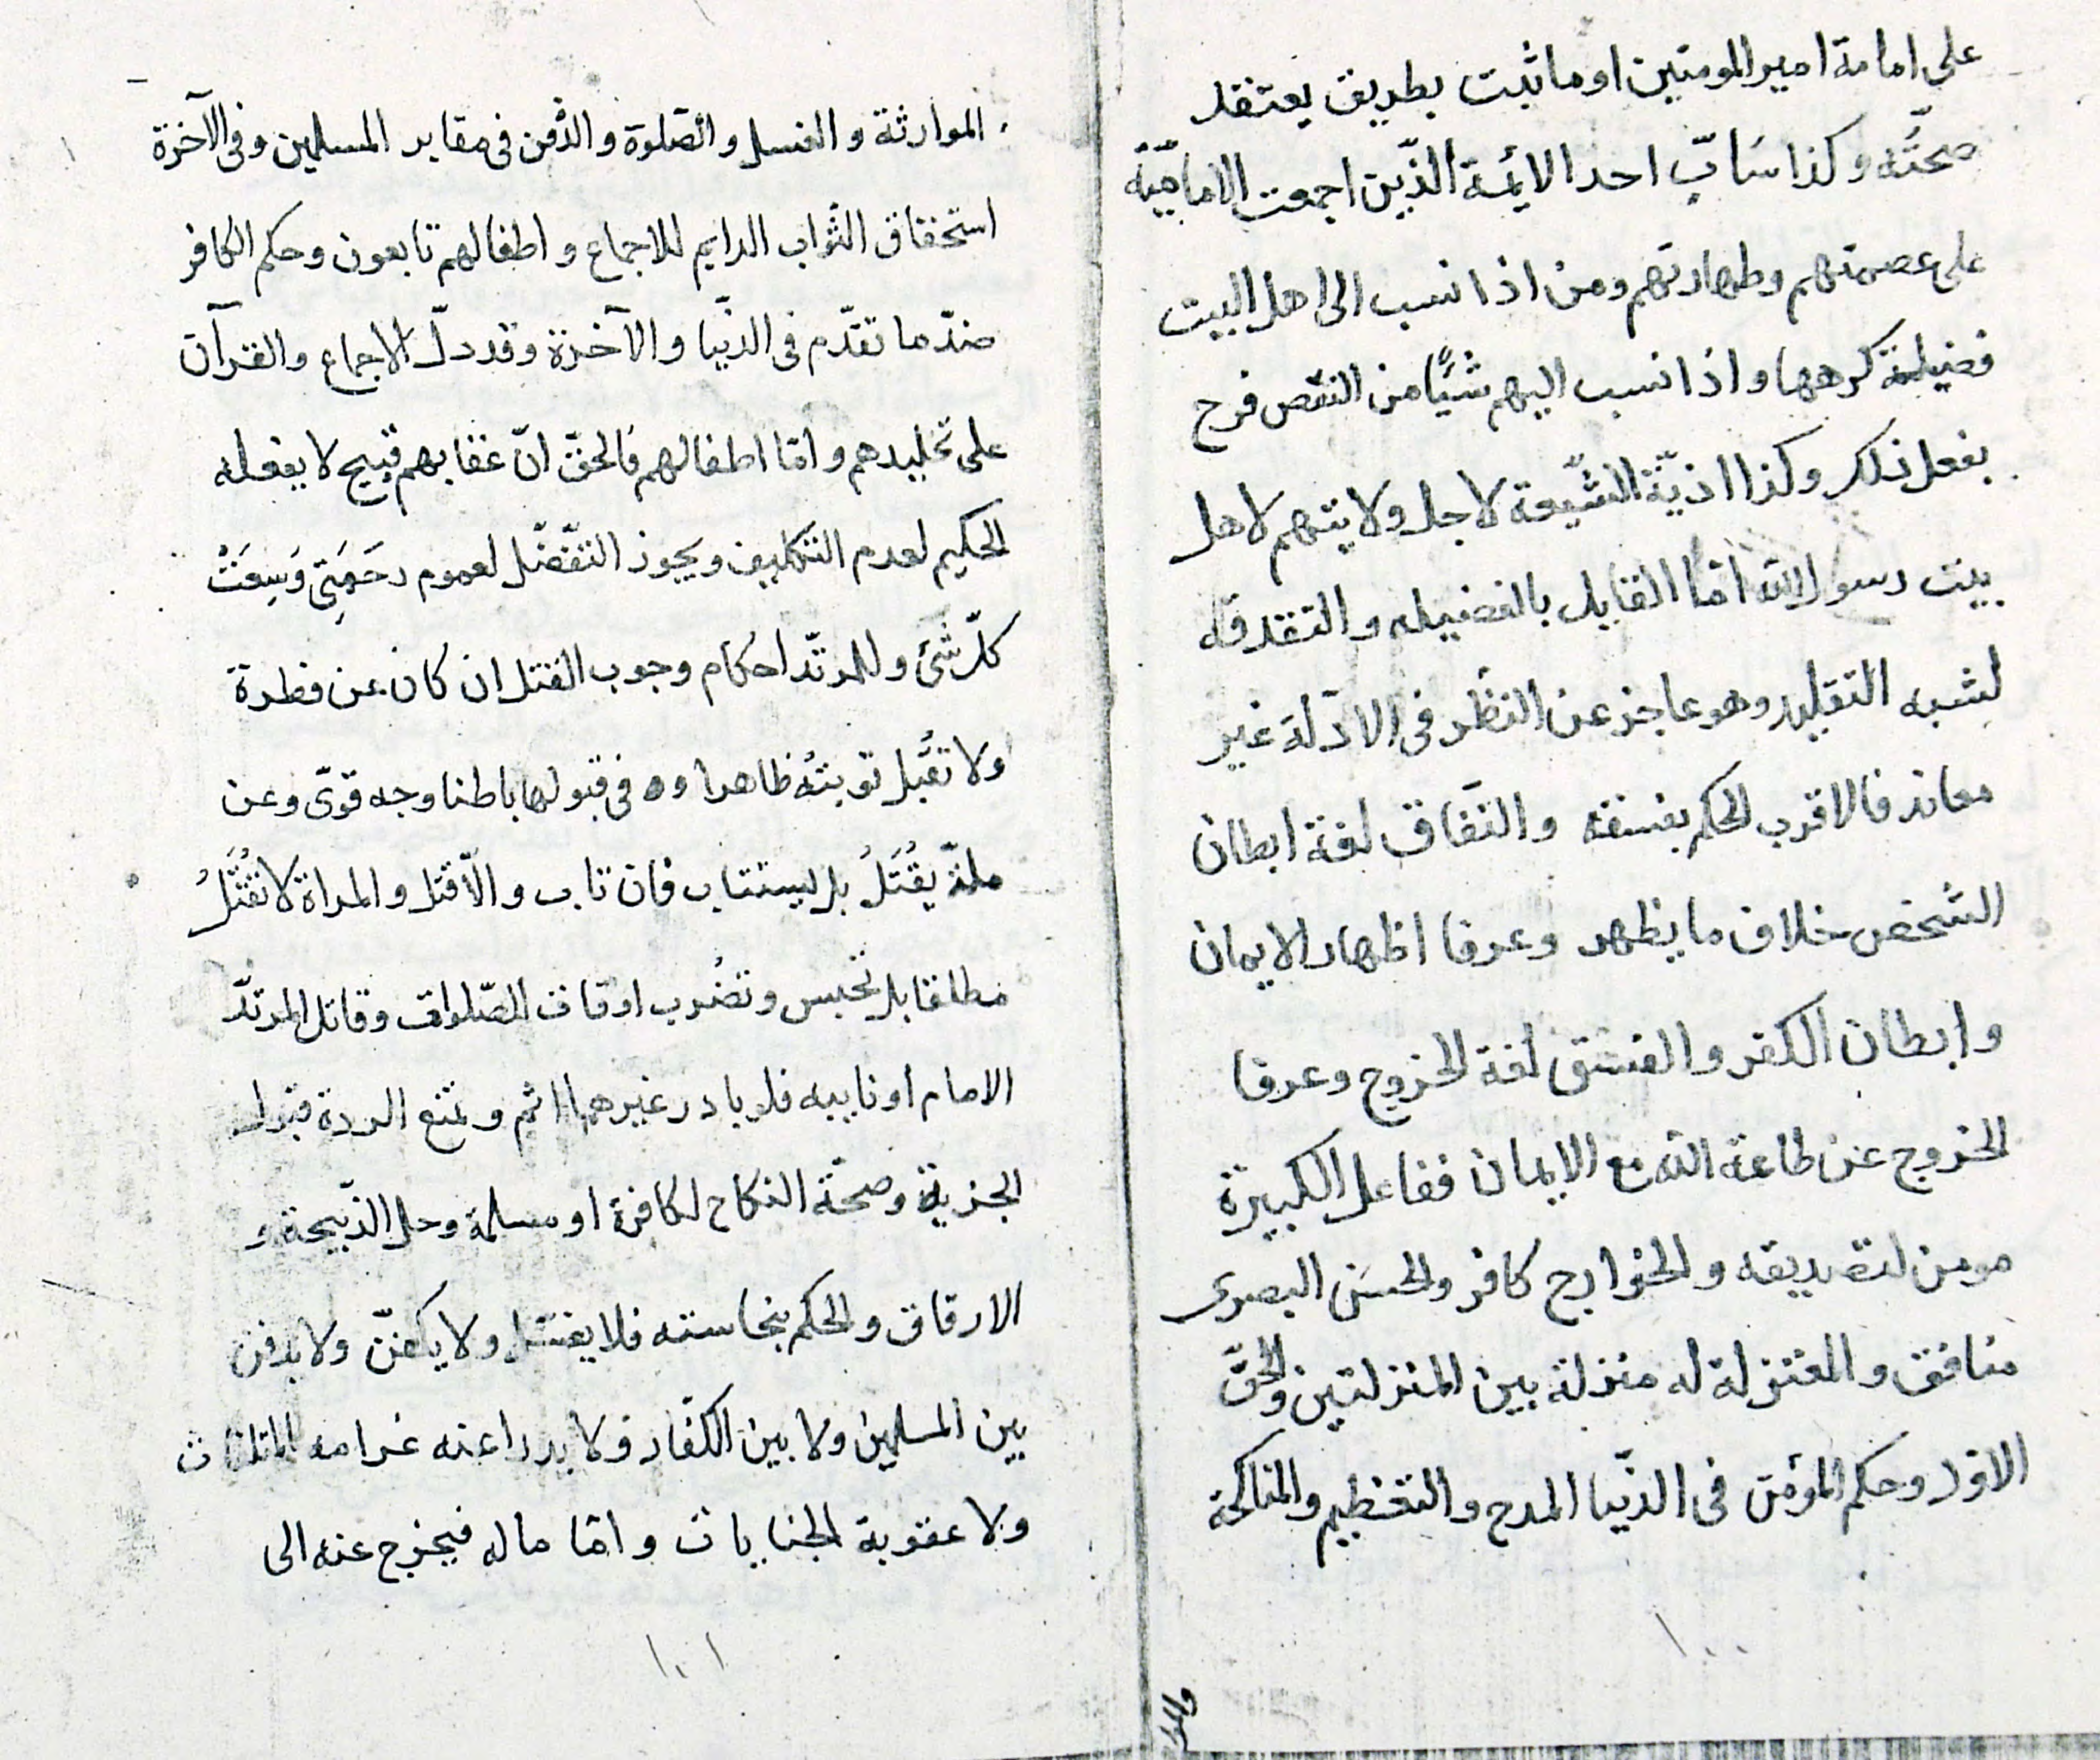 على امامة امير المومنين او ما ثبت بطريق يعتقد
صحتّه وكذا سَابّ احد الايمة الذّين اجمعت الاماميّة
على عصمتهم وطهارتهم ومن اذا نسب الى اهل البيت
فضيلة كرهها واذا نسب اليهم شيئًا من النقص فرح
بفعل ذلك وكذا اذيّة الشّيعة لاجل ولايتهم لاهل
بيت رسول الله امّا القايل بالفضيله و
لشبه التقليد وهو عاجز عن النظر فى الادّلة غير
معاند فالاقرب الحكم بفسقه والنّفاق لغة ابطان
الشخص خلاف ما يظهر وعرفا اظهار الايمان
وابطان الكفر والفسق لغة الخروج وعرفا
الخروج عن طاعة الله مع الايمان ففاعل الكبيرة
مومن لتصديقه والخوارج كافر والحسَن البصرى
منافق والمعتزلة له منزلة بين المنزلتين والحقّ
الاوّل وحكم المؤمن فى الدّنيا المدح والتعظيم والمناكحة
١٠٠
والموا
الموارثة والغسل والصّلوة والدّفن فى مقابر المسلمين وفى الآخرة
استحقاق الثّواب الدايم للاجماع واطفالهم تابعون وحكم الكافر
ضدّ ما تقدّم فى الدّنيا والآخرة وقد دلّ الاجماع والقرآن
على تخليدهم وامّا اطفالهم فالحقّ انّ عقابهم قبيح لا يفعله
الحكيم لعدم التكليف ويجوز التفضّل لعموم رحَمَتِى وَسِعَتْ
كلّ شَئ وللمرتدّ احكام وجوب القتل ان كان عن فطرة
ولا تقُبل توبتُه ظاهرا وفى قبولها باطنا وجه قوّى وعن
ملّة يقُتَلُ بل يستتاب فان تاب والاّ قتل والمراة لا تقُتَلُ
مطلقا بل تحبس وتضُرب اوقات الصّلوات وقاتل المرتدّ
الامام او نايبه فلو بادر غيرهما اثم وتمنع الردة قبول
الجزية وصحّة النكاح لكافرة او مسلمة وحل الذّبيحة و
الارقاق والحكم بنجاسته فلا يغسّل ولا يكفنّ ولا يدفن
بين المسلمين ولا بين الكفّار ولا يدرا عنه غرامه المتلفات
ولا عقوبة الجنايات وامّا ماله فيخرج عنه الى
١٠١